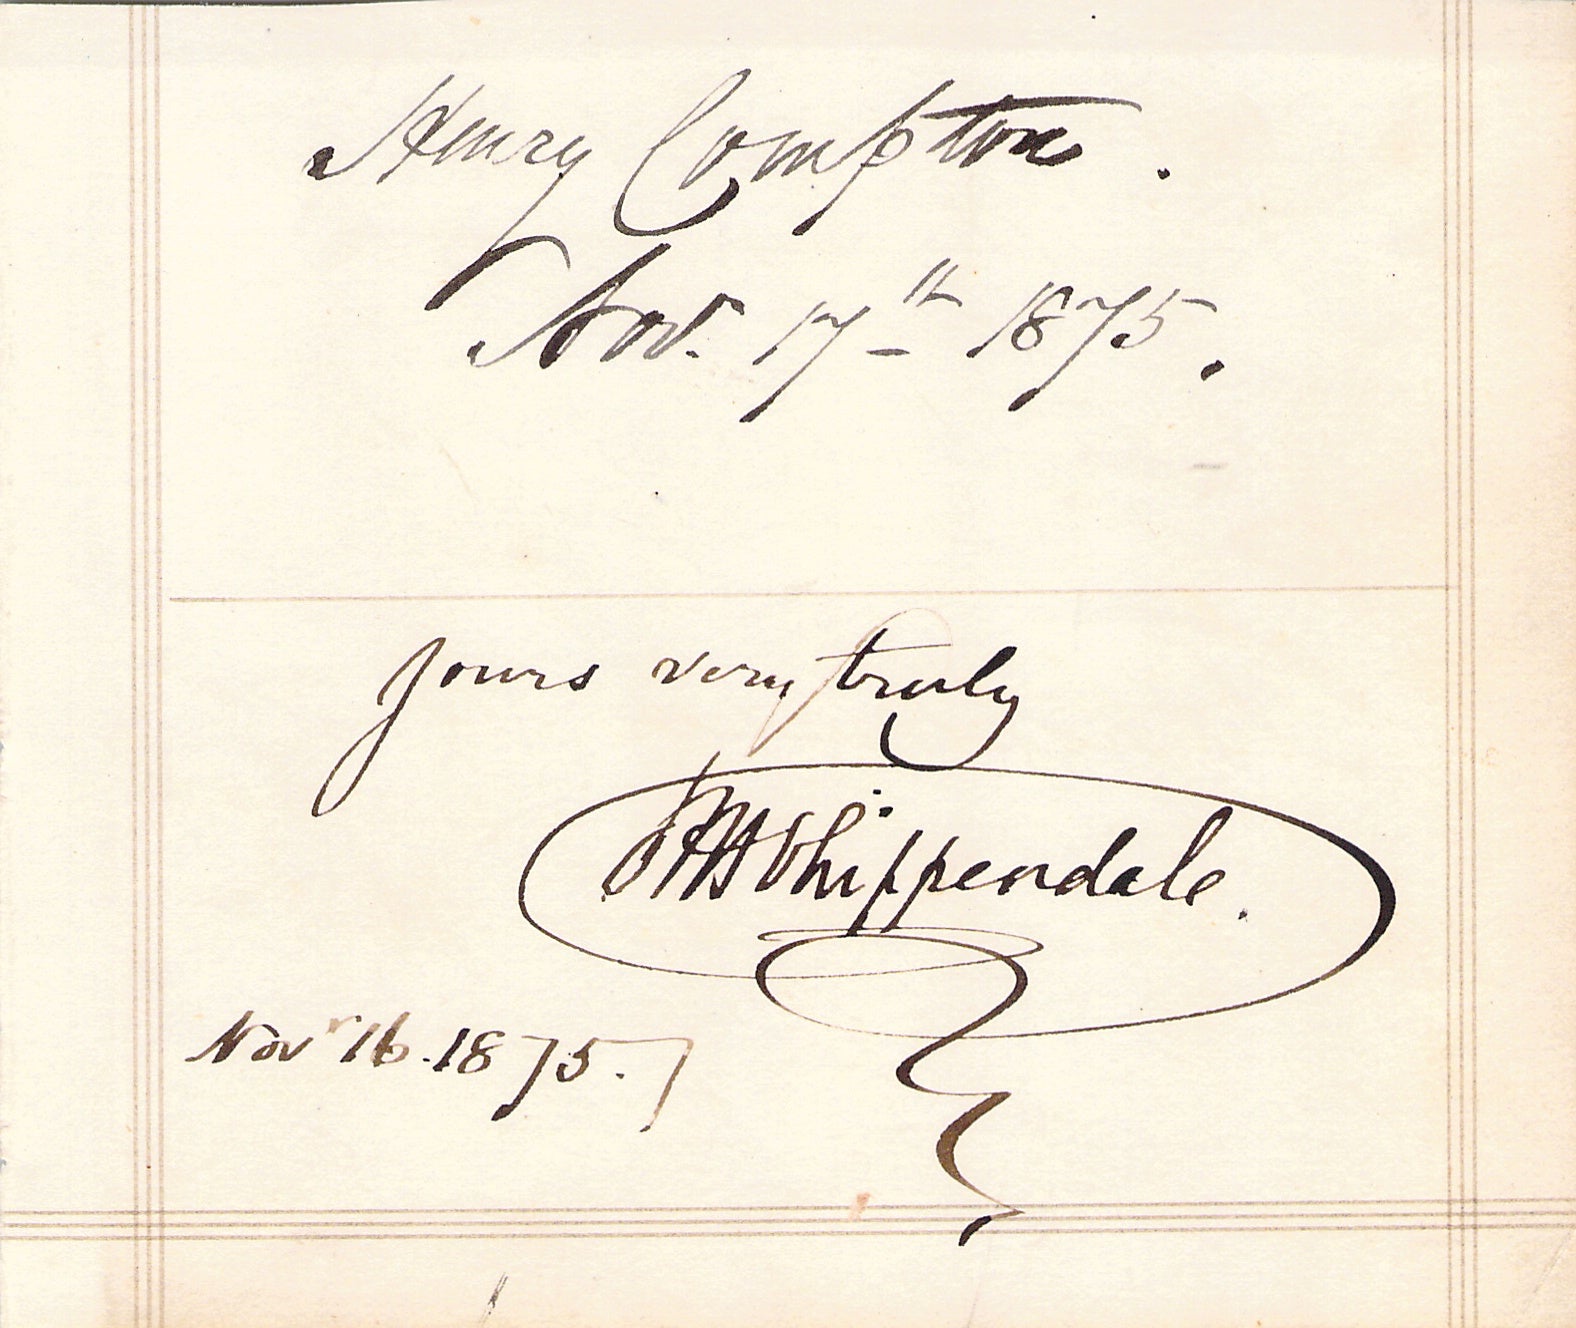 Henry Compton.
Nov. 17th 1875.
Yours very truly
W H Chippendale.
Novr 16. 1875.